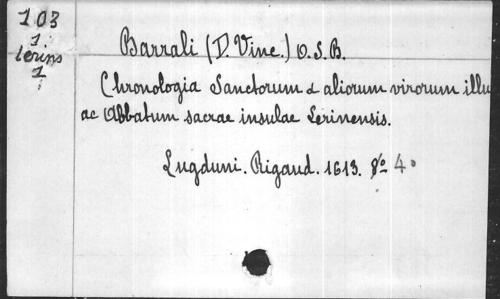 103
1
Lerins
1
Barrali (D. Vinc.) O.S.B.
Chronologia Sanctorum & aliorum virorum illu
ac Abbatum sacrae insulae Lerinensis.
Lugduni. Rigaud. 1613. 8º 4º